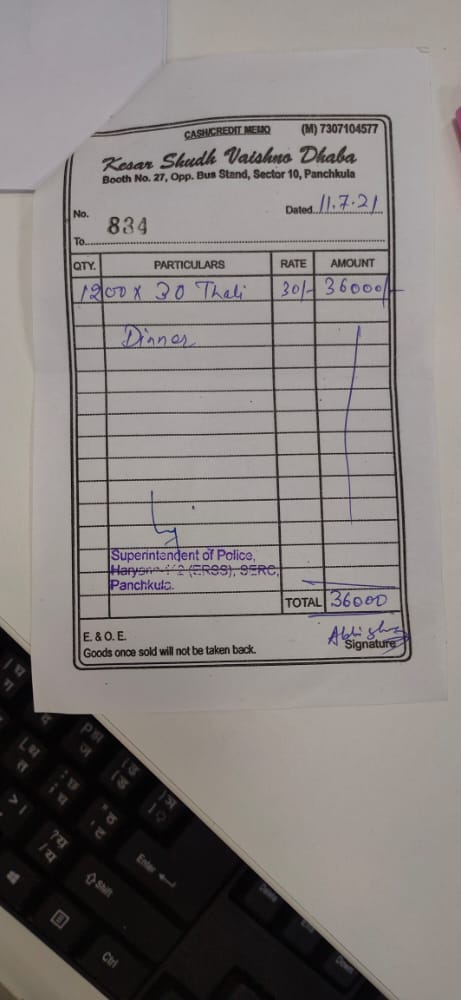 CASH/CREDIT MEMO (M) 7307104577
Kesar Shudh Vaishno Dhaba
Booth No. 27, Opp. Bus Stand, Sector 10, Panchkula
No. 834 Dated 11.7.21
To
QTY. PARTICULARS RATE AMOUNT
1200 x 30 Thali 30/- 36000/-
Dinner
Superintendent of Police,
(ERSS), SERC,
Panchkula.
TOTAL 36000
E. & O. E.
Goods once sold will not be taken back. Signature
Enter
Shift
Ctrl